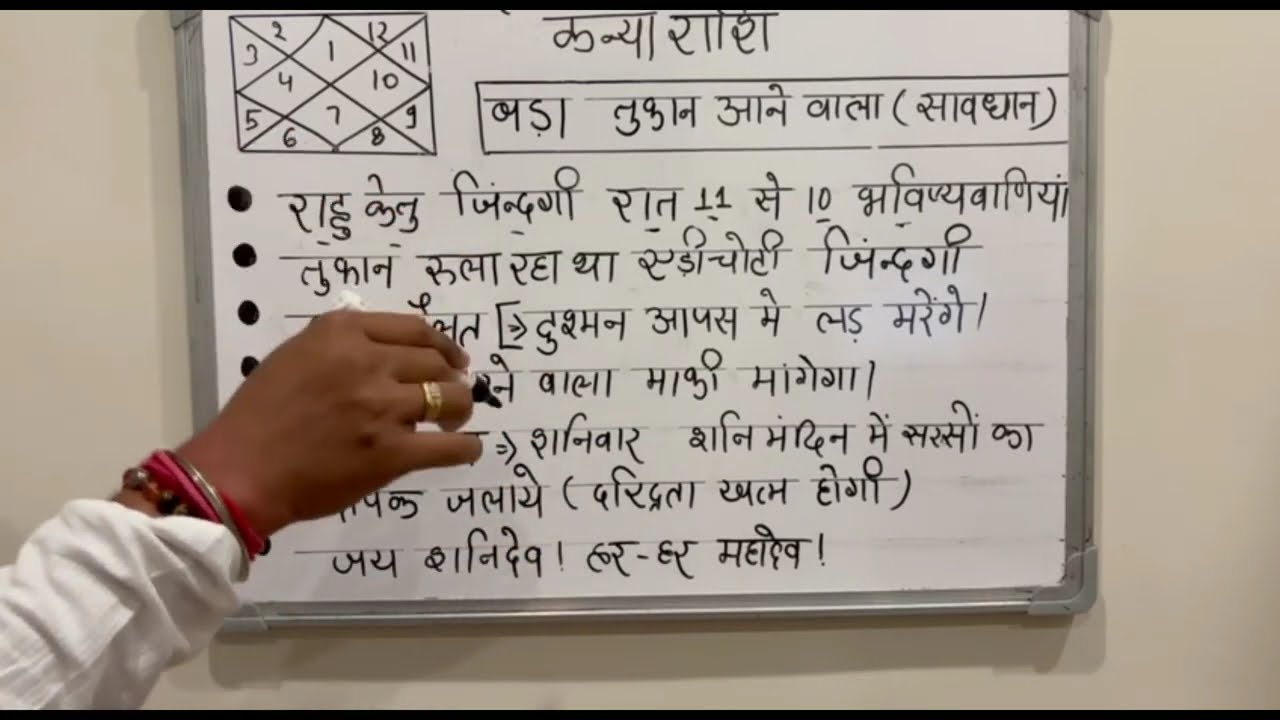 कन्या राशि
2 12
3 1 11
4 10
5 7 9
6 8
बड़ा तुफान आने वाला ( सावधान )
राहु केतु जिंन्दगी रात 11 से 10 भविष्यवाणियां
तुफान रुला रहा था एड़ीचोटी जिंन्दगी
[⇒ दुश्मन आपस मे लड़ मरेंगे।
वाला माफी मांगेगा।
⇒ शनिवार शनि मंदिन में सरसों का
जलाये ( दरिद्रता खत्म होगी )
जय शनिदेव! हर-हर महादेव!